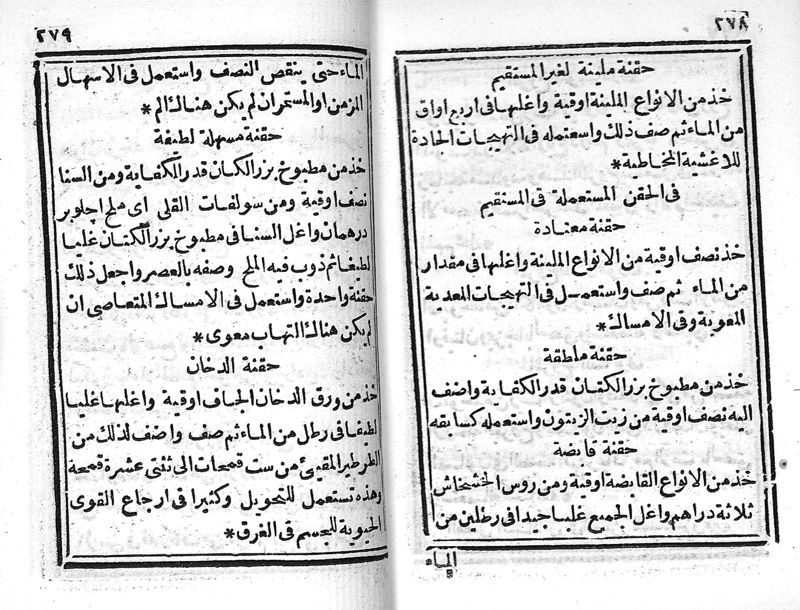 ٢٧٨
حقنة ملينة لغير المستقيم
خذ من الانواع الملينة اوقية واغلها فى اربع اواق
من الماء ثم صف ذلك واستعمله فى التهيجات الحادة
للاغشية المخاطية *
فى الحقن المستعملة فى المستقيم
حقنة معتادة
خذ نصف اوقية من الانواع الملينة واغلها فى مقدار
من الماء ثم صف واستعمل فى التهيجات المعدية
المعوية وفى الامساك *
حقنة ملطقة
خذ من مطبوخ بزر الكتان قدر الكفاية واضف
اليه نصف اوقية من زيت الزيتون واستعمله كسابقه
حقنة قابضة
خذ من الانواع القابضة اوقية ومن روس الخشخاش
ثلاثة دراهم واغل الجميع غليا جيدا فى رطلين من
الماء
٢٧٩
الماء حتى ينقص النصف واستعمل فى الاسهال
المزمن او المستمر ان لم يكن هناك الم *
حقنة مسهلة لطيفة
خذ من مطبوخ بزر الكتان قدر الكفاية ومن السنا
نصف اوقية ومن سولفات القلى اى ملح اجلوبر
درهمان واغل السنا فى مطبوخ بزر الكتان غليا
لطيفا ثم ذوب فيه الملح وصفه بالعصر واجعل ذلك
حقنة واحدة واستعمل فى الامساك المتعاصى ان
لم يكن هناك التهاب معوى *
حقنة الدخان
خذ من ورق الدخان الجاف اوقية واغلها غليا
لطيفا فى رطل من الماء ثم صف واضف لذلك من
الطرطير المقيئ من ست قمعات الى ثنتى عشرة قمحة
وهذه تستعمل للتحويل وكثيرا فى ارجاع القوى
الحيوية للجسم فى الغرق *